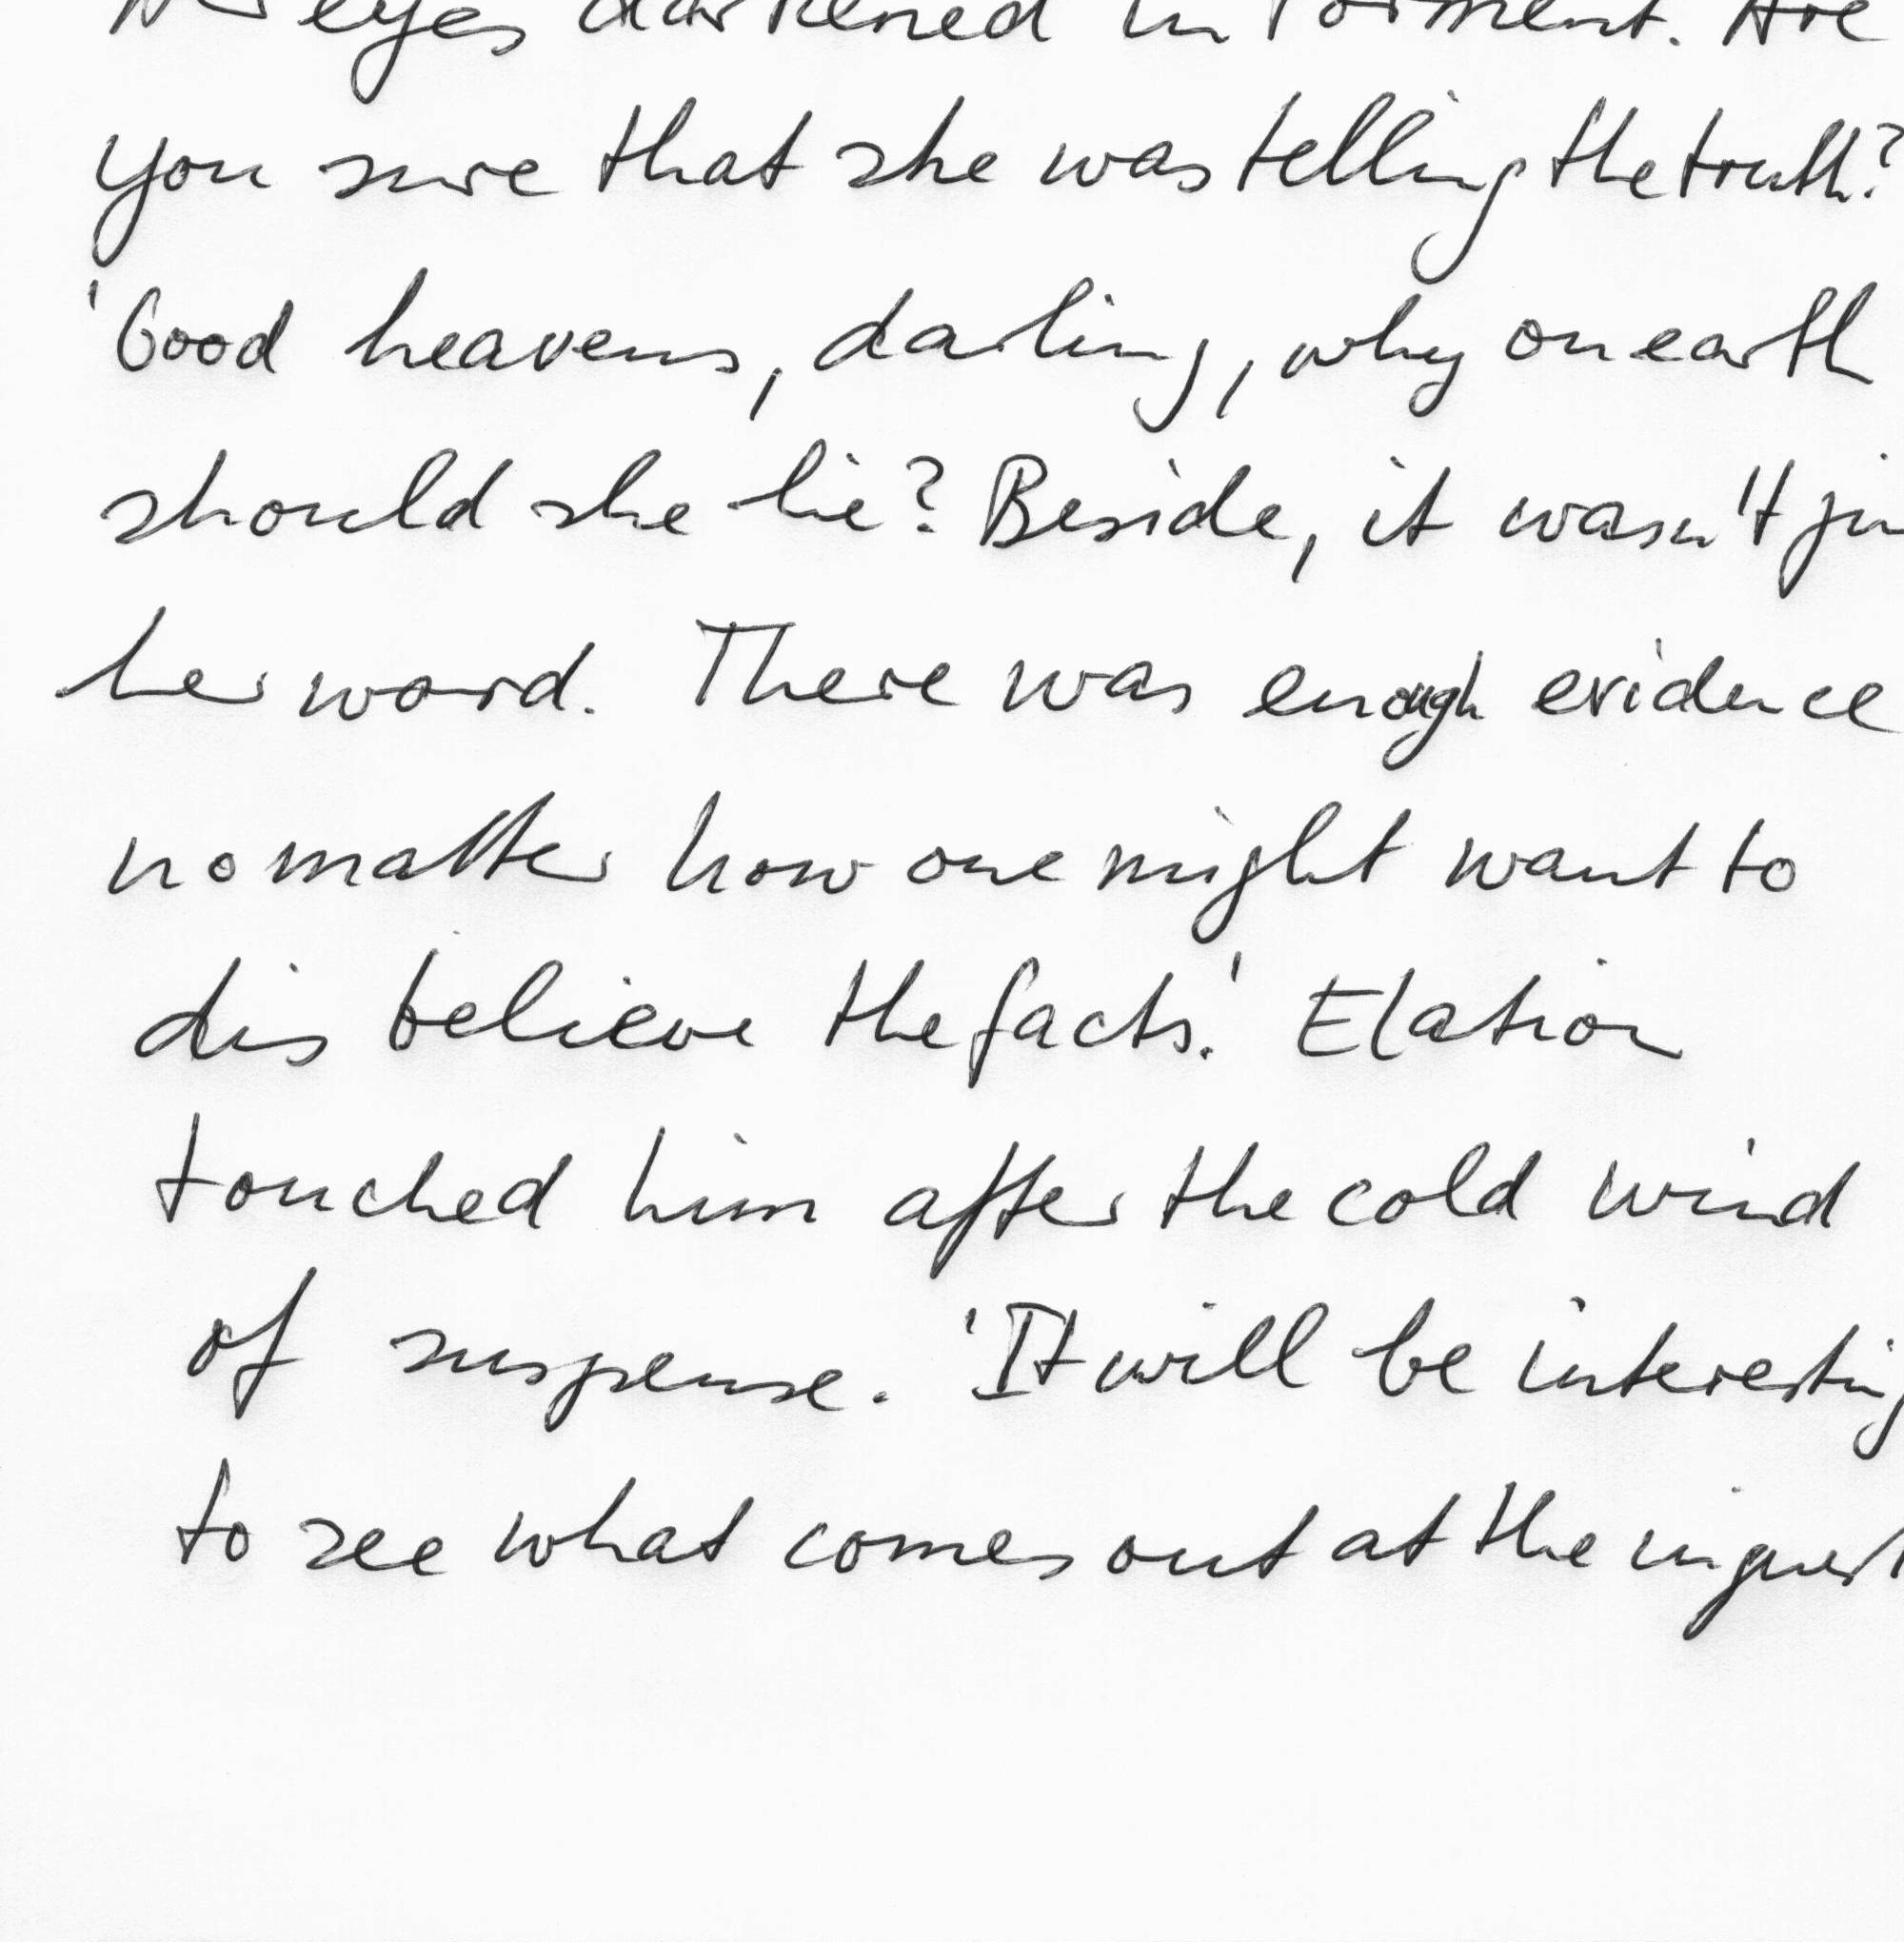 eyes darkened in torment. Are
you sure that she was telling the truth?
'Good heavens, darling, why on earth
should she lie? Beside, it wasn't
her word. There was enough evidence
no matter how one might want to
dis believe the facts.' Elation
touched him after the cold wind
of suspense. 'It will be interesting
to see what comes out at the inquest